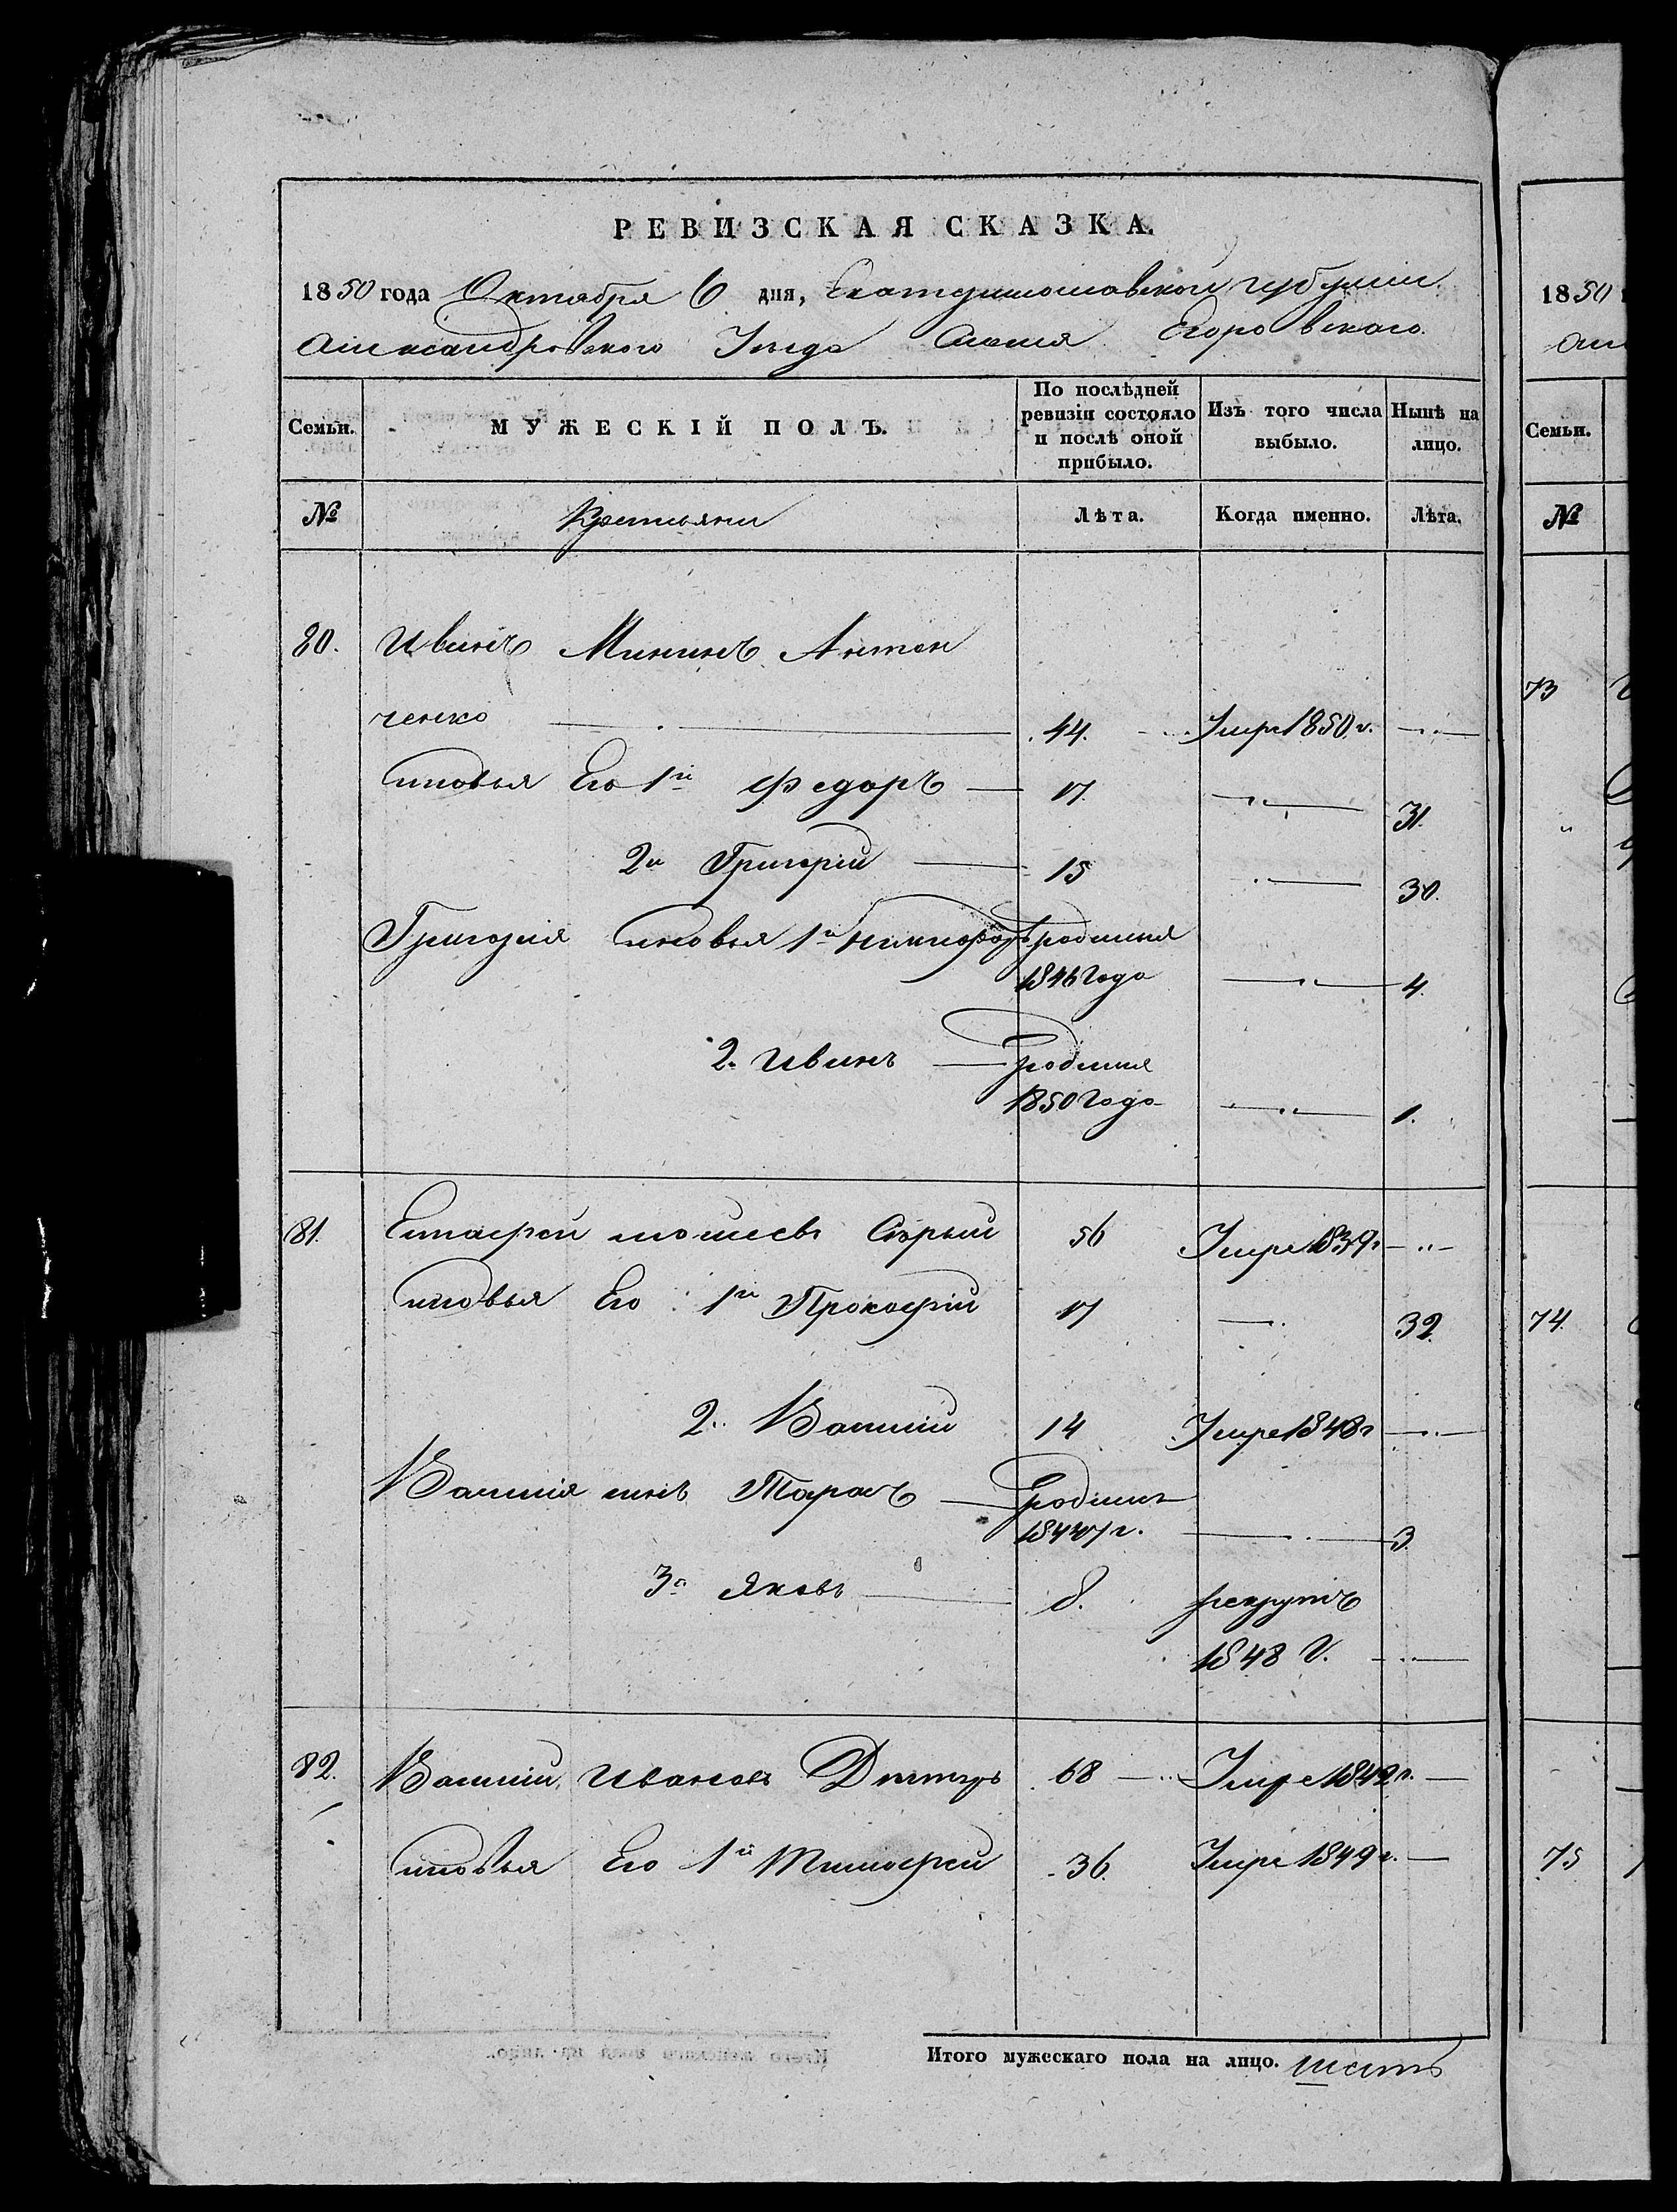 РЕВИЗСКАЯ СКАЗКА.
1850 года Октября 6 дня, Екатеринославской губернии
Александровского Уезда Егоровскаго.
Семьи. МУЖЕСКІЙ ПОЛЪ. По послѣдней ревизіи состояло и послѣ оной прибыло. Изъ того числа выбыло. Нынѣ на лицо.
№ Крестьяне Лѣта. Когда именно. Лѣта.
80. Ивинъ Мининъ Антон
ченко 44. Умре 1850 г.
сыновья Его 1й Федоръ 17. 31.
2й Григорій 15 30.
Григорія сыновья 1й Никифоръ родился
1846 Года 4.
2. Ивинъ родился
1850 Года 1.
81. Евтафей Сѣрый 56 Умре 1839 г
сыновья Его 1й Прокофій 17 32.
2. Василій 14 Умре 1848 г
Василія сынъ Тарасъ родился
1847 г. 3.
3й Яковъ 8. рекрутъ
1848 г.
82. Василій Ивановъ 68 Умре 1842 г.
сыновья Его 1й Тимофей 36. Умре 1849 г.
Итого мужескаго пола на лицо. шесть
1850
Але
Семьи.
№
73
74.
75